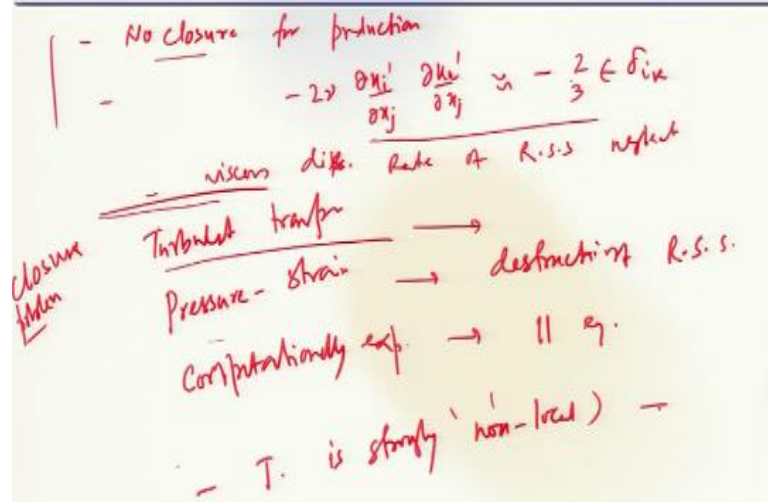 - No closure for production
- -2ν ∂ui'/∂xj ∂uk'/∂xj ≈ - 2/3 ϵ δik
- viscous diss. Rate of R.S.S neglect
closure
Turbulent transpor →
Pressure-strain → destruction R.S.S.
Computationally exp. → 11 eq.
- T. is strongly 'non-local) -